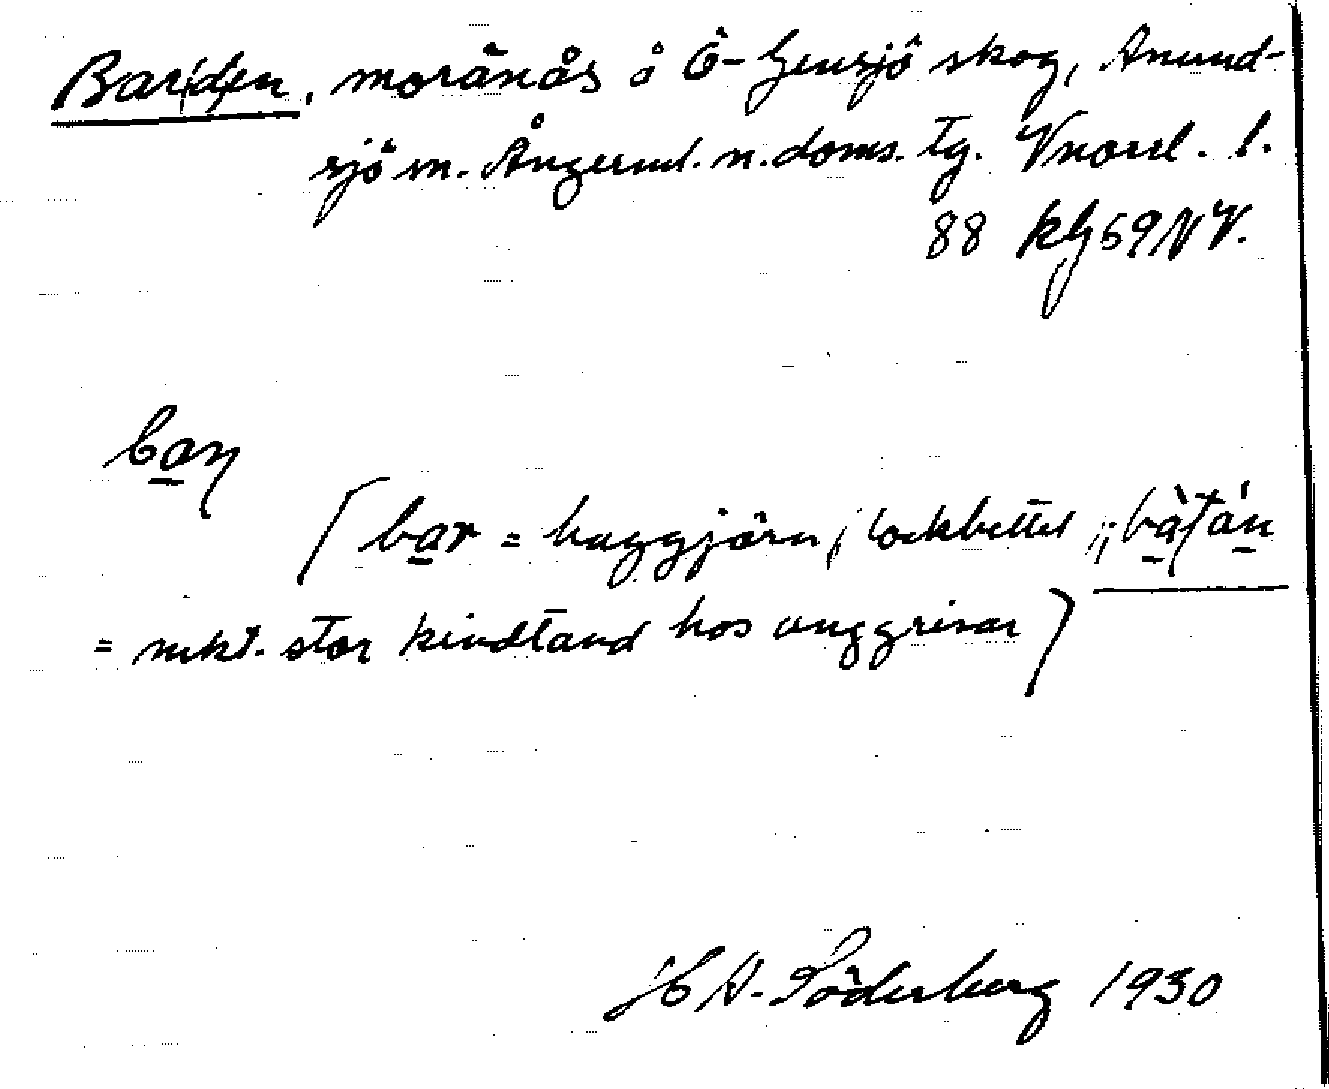 Barden, moränås å Ö-Gensjö skog, Anund-
sjö sn. Ångerml. n. doms. tg. Vnorrl. l.
88 kbl 59 NV.
baṇ
(bar = huggjärn, lockbettel; bàtán
= mkt. stor kindtand hos unggrisar)
H A. Söderberg 1930